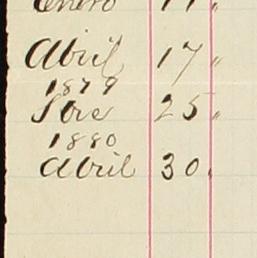 Enero 11 "
Abril 17 "
1879
Sbre 25 "
1880
Abril 30 "